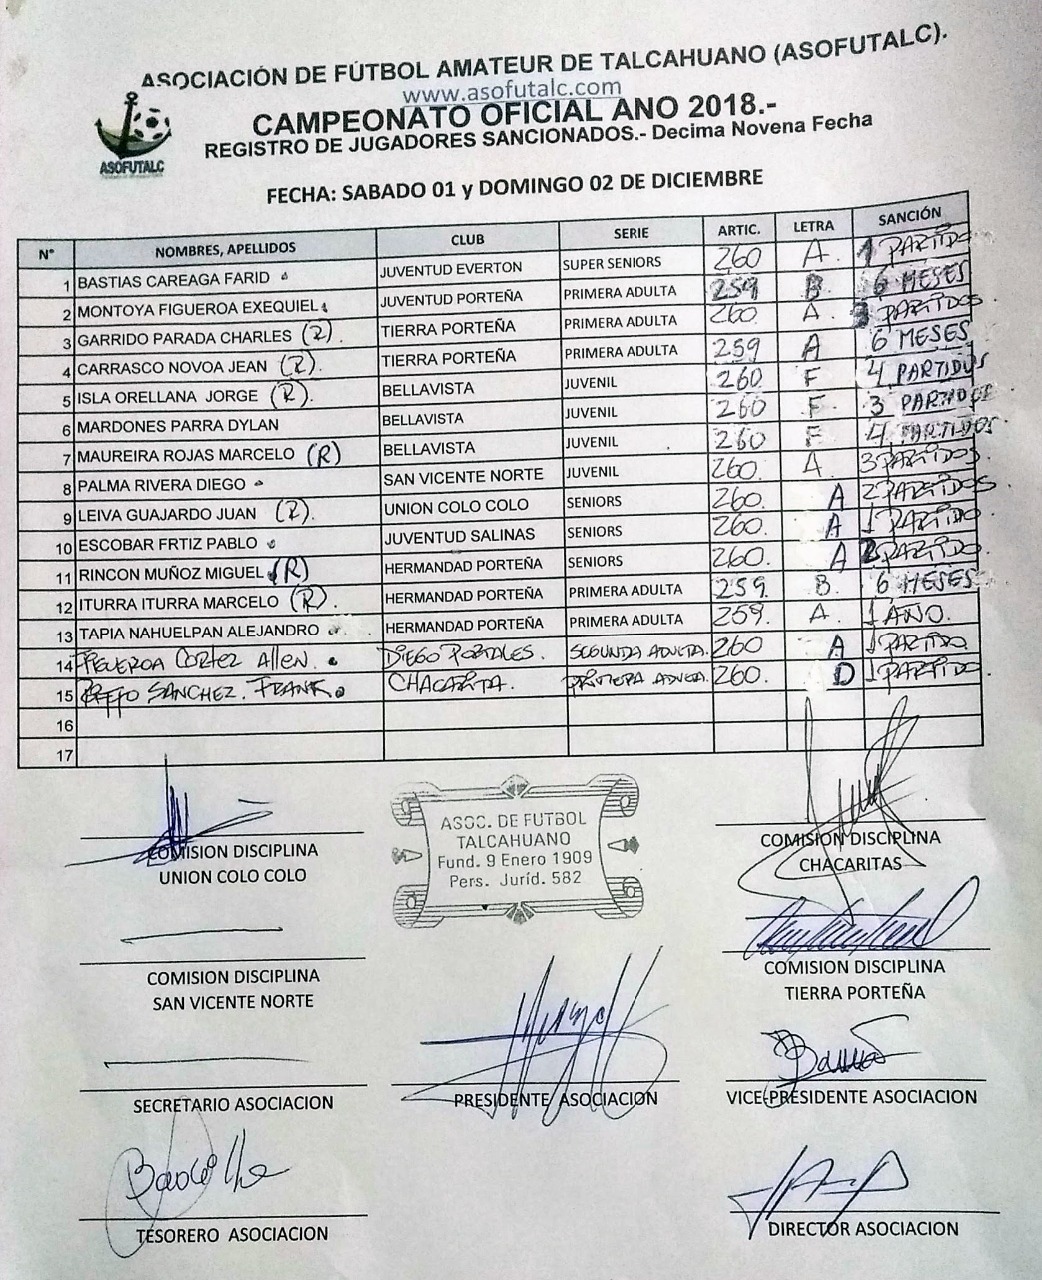 ASOCIACIÓN DE FÚTBOL AMATEUR DE TALCAHUANO (ASOFUTALC).
www.asofutalc.com
CAMPEONATO OFICIAL ANO 2018.-
REGISTRO DE JUGADORES SANCIONADOS.- Decima Novena Fecha
ASOFUTALC
FECHA: SABADO 01 y DOMINGO 02 DE DICIEMBRE
N° NOMBRES, APELLIDOS CLUB SERIE ARTIC. LETRA SANCIÓN
1 BASTIAS CAREAGA FARID JUVENTUD EVERTON SUPER SENIORS 260 A 1 PARTIDO
2 MONTOYA FIGUEROA EXEQUIEL JUVENTUD PORTEÑA PRIMERA ADULTA 259 B 6 MESES
3 GARRIDO PARADA CHARLES (R). TIERRA PORTEÑA PRIMERA ADULTA 260. A. 3 PARTIDOS.
4 CARRASCO NOVOA JEAN (R). TIERRA PORTEÑA PRIMERA ADULTA 259 A 6 MESES
5 ISLA ORELLANA JORGE (R). BELLAVISTA JUVENIL 260 F 4 PARTIDOS
6 MARDONES PARRA DYLAN BELLAVISTA JUVENIL 260 F 3 PARTIDOS
7 MAUREIRA ROJAS MARCELO (R) BELLAVISTA JUVENIL 260 F 4 PARTIDOS
8 PALMA RIVERA DIEGO SAN VICENTE NORTE JUVENIL 260. A 3 PARTIDOS.
9 LEIVA GUAJARDO JUAN (R). UNION COLO COLO SENIORS 260. A 2 PARTIDOS
10 ESCOBAR FRTIZ PABLO JUVENTUD SALINAS SENIORS 260. A 1 PARTIDO
11 RINCON MUÑOZ MIGUEL (R) HERMANDAD PORTEÑA SENIORS 260. A PARTIDO.
12 ITURRA ITURRA MARCELO (R). HERMANDAD PORTEÑA PRIMERA ADULTA 259. B. 6 MESES
13 TAPIA NAHUELPAN ALEJANDRO HERMANDAD PORTEÑA PRIMERA ADULTA 259. A 1 AÑO.
14 FIGUEROA CORTEZ Allen. DIEGO PORTALES. SEGUNDA ADULTA. 260 A 1 PARTIDO.
15 SANCHEZ. FRANK. CHACARITA. PRIMERA ADULTA. 260. D 1 PARTIDO
16
17
ASOC. DE FUTBOL
TALCAHUANO
Fund. 9 Enero 1909
Pers. Juríd. 582
COMISION DISCIPLINA
UNION COLO COLO
COMISION DISCIPLINA
CHACARITAS
COMISION DISCIPLINA
SAN VICENTE NORTE
COMISION DISCIPLINA
TIERRA PORTEÑA
SECRETARIO ASOCIACION
PRESIDENTE ASOCIACION
VICE-PRESIDENTE ASOCIACION
TESORERO ASOCIACION
DIRECTOR ASOCIACION